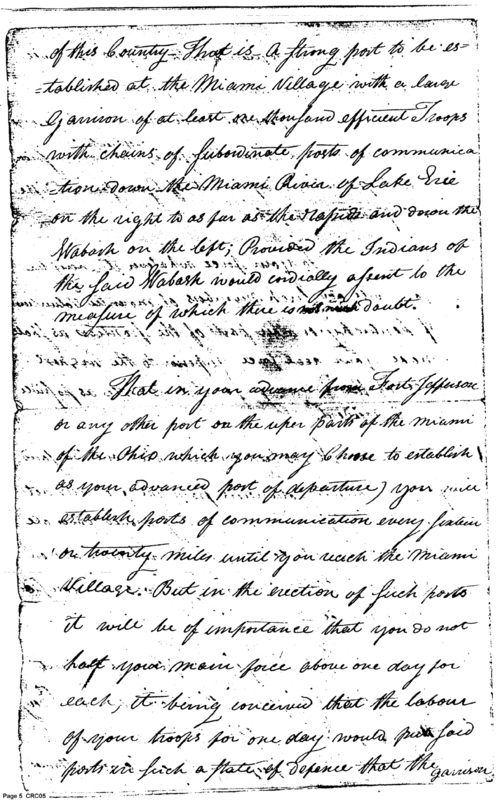 of this Country That is A strong post to be es=
=tablished at the Miami Village with a large
Garrison of at least one thousand efficient Troops
with chains of Subordinate posts of communica
=tion down the Miami River of Lake Erie
on the right to as far as the Rapids and down the
Wabash on the left; Provided the Indians of
the said Wabash would cordially assent to the
measure of which there is not much doubt.
That in your advance from Fort Jefferson
or any other post on the uper parts of the Miami
of the Ohio which you may Choose to establish
as your advanced post of departure) you will
establish posts of communication every sixteen
or twenty miles until you reach the Miami
Village. But in the erection of such posts
it will be of importance that you do not
halt your main force above one day for
each, it being conceived that the labour
of your troops for one day would put said
posts in such a state of defence that the
garrison
Page 5 CRC05